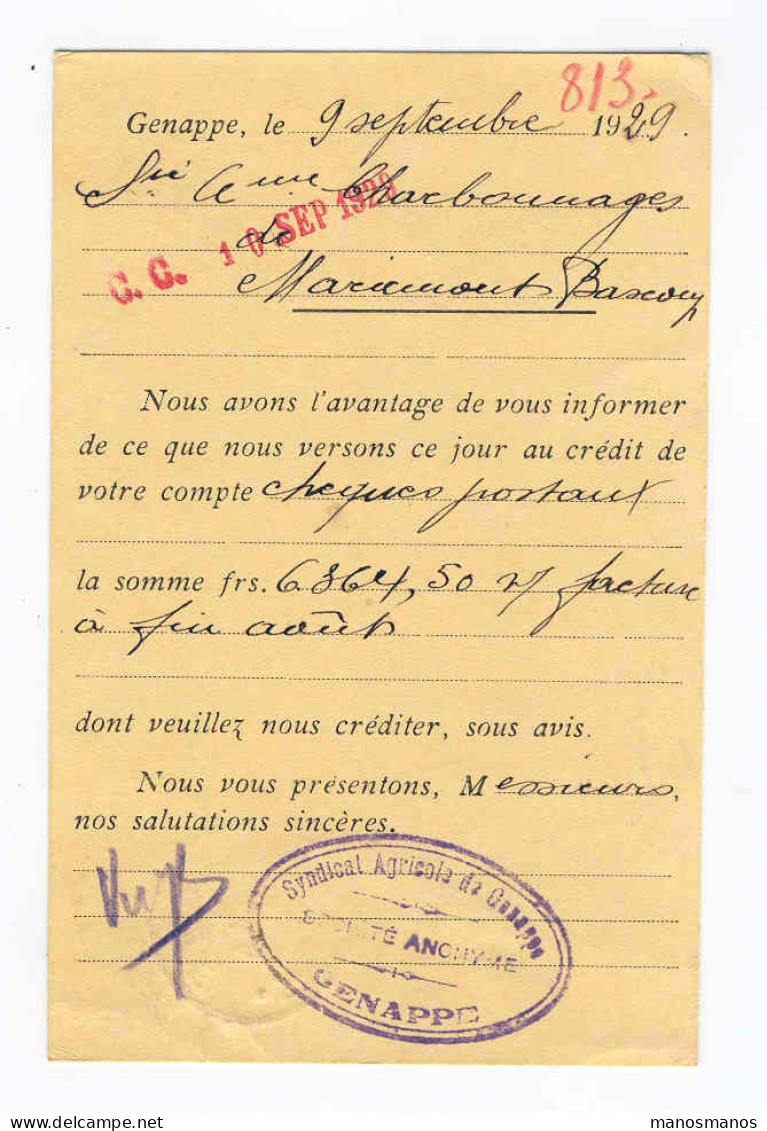 813.
Genappe, le 9 septembre 1929.
Sté Ame Charbonnages
de
Mariemont Bascoup
C. C. 10 SEP 1929
Nous avons l'avantage de vous informer
de ce que nous versons ce jour au crédit de
votre compte cheques postaux
la somme frs. 6364,50 v/ facture
à fin août
dont veuillez nous créditer, sous avis.
Nous vous présentons, Messieurs,
nos salutations sincères.
Syndicat Agricole de Genappe
SOCIÉTÉ ANONYME
GENAPPE
manosmanos